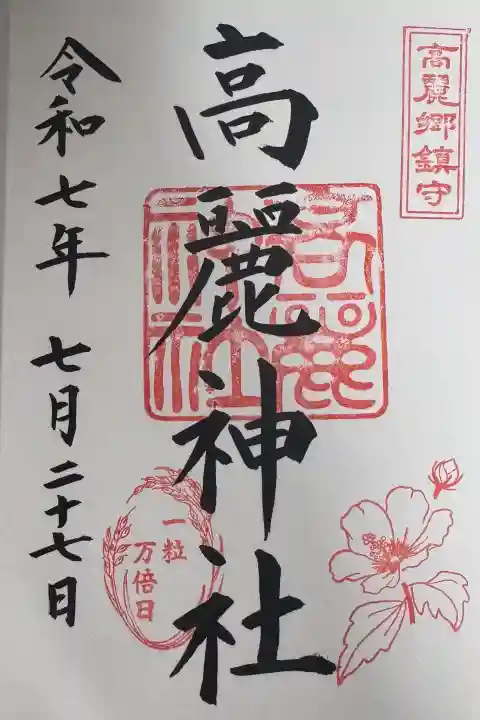 高麗郷鎮守
高麗神社
高麗神社
一粒
万倍日
令和七年 七月二十七日